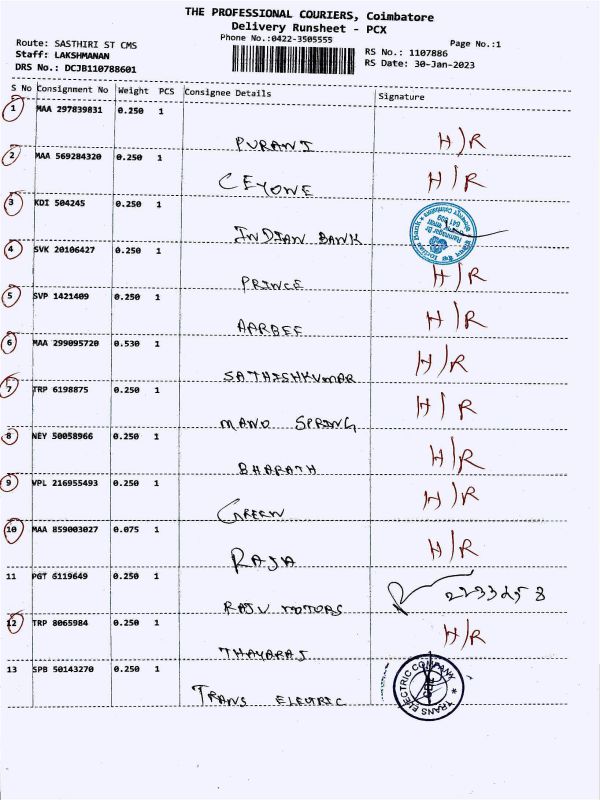 THE PROFESSIONAL COURIERS, Coimbatore
Delivery Runsheet - PCX
Phone No.:0422-3505555
Page No.:1
Route: SASTHIRI ST CMS
Staff: LAKSHMANAN
DRS No.: DCJB110788601
RS No.: 1107886
RS Date: 30-Jan-2023
S No Consignment No Weight PCS Consignee Details Signature
1 MAA 297839831 0.250 1
PURANI H/R
2 MAA 569284320 0.250 1
CEYONE H/R
3 KDI 504245 0.250 1
INDIAN BANK
4 SVK 20106427 0.250 1
PRINCE H/R
5 SVP 1421409 0.250 1
AARBEE H/R
6 MAA 299095720 0.530 1
SATHISHKUMAR H/R
7 TRP 6198875 0.250 1
MANO SPRING H/R
8 NEY 50058966 0.250 1
BHARATH H/R
9 VPL 216955493 0.250 1
GREEN H/R
10 MAA 859003027 0.075 1
RAJA H/R
11 PGT 6119649 0.250 1
RAJU MOTORS 2233258
12 TRP 8065984 0.250 1
THAYARAJ H/R
13 SPB 50143270 0.250 1
TRANS ELECTRIC
TRANS ELECTRIC COMPANY
CBE